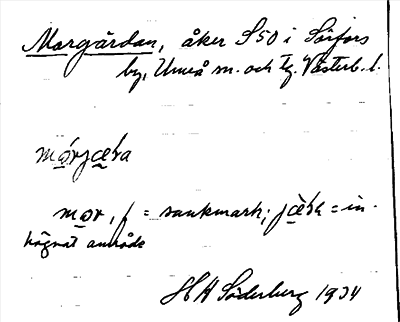 Morgärdan, åker S50 i Sörfors
by, Umeå sn. och tg. Västerb. l.
mǫ́rjæ̀ra
mǫr, f = sankmark; jæ̀ra = in-
hägnat område
H H Söderburg 1934